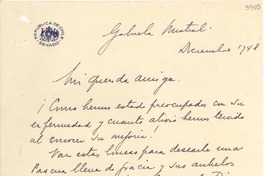 REPUBLICA DE CHILE
SENADO
Gabriela Mistral
Diciembre 1948
Mi querida amiga:
¡Como hemos estado preocupados con su
enfermedad y cuanto alivio hemos tenido
al conocer su mejoría!
Van estas líneas para desearle una
Pascua llena de gracia y sus anhelos